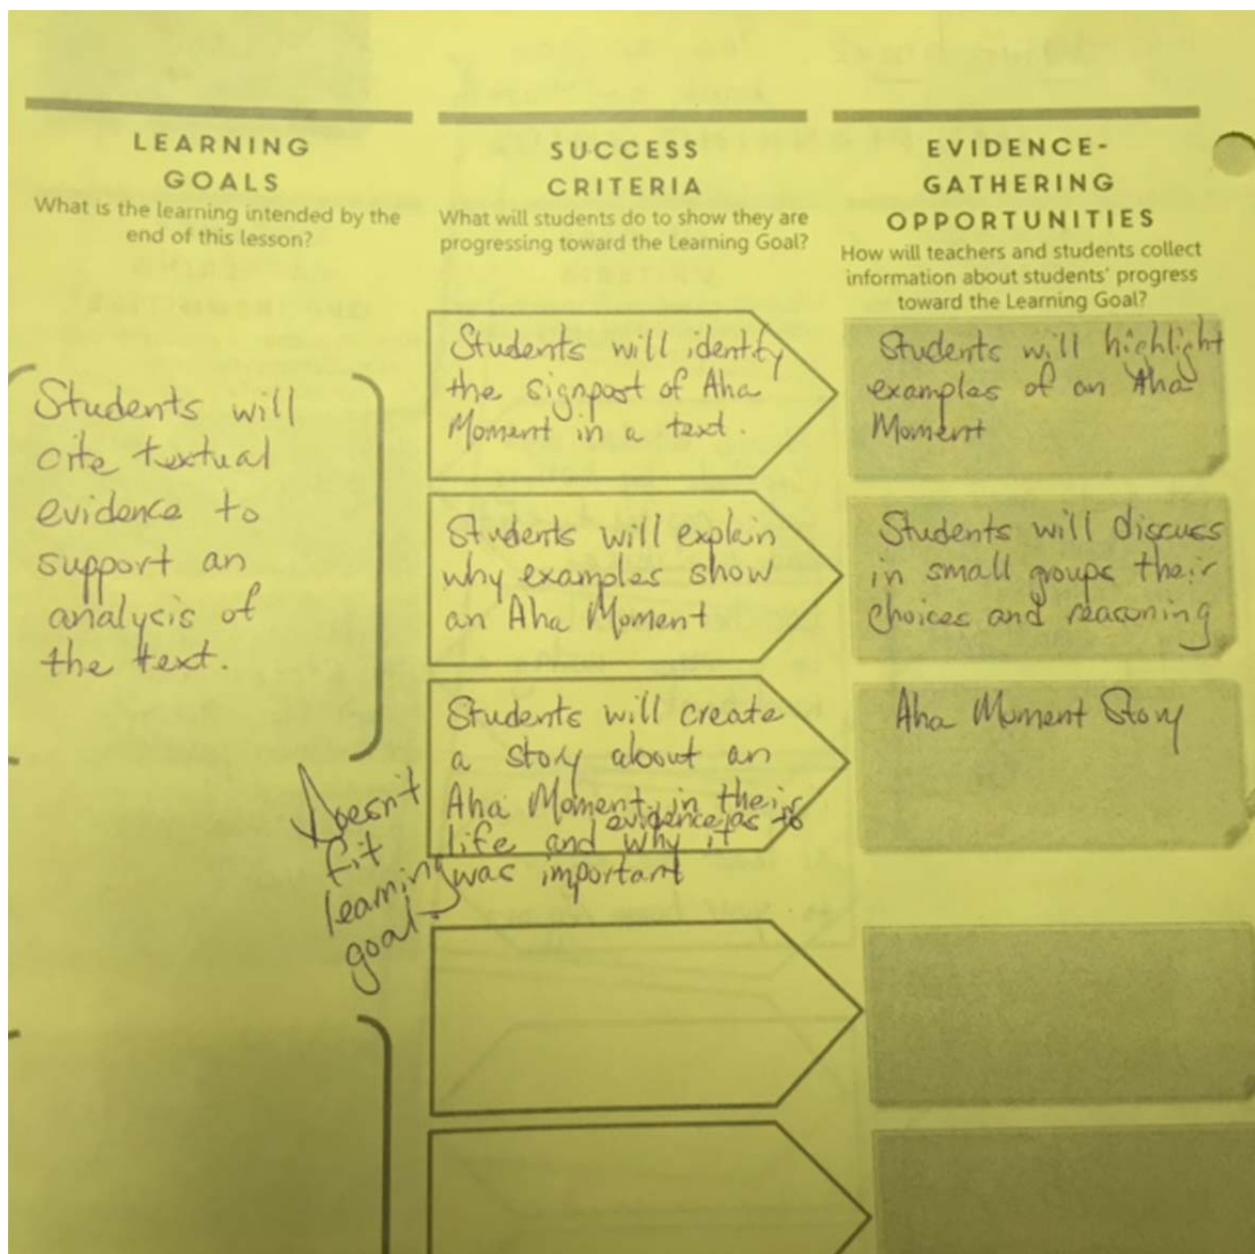 LEARNING
GOALS
What is the learning intended by the
end of this lesson?
Students will
cite textual
evidence to
support an
analysis of
the text.
SUCCESS
CRITERIA
What will students do to show they are
progressing toward the Learning Goal?
Students will identify
the signpost of Aha
Moment in a text.
Students will explain
why examples show
an Aha Moment
Students will create
a story about an
Aha Moment in their
life and evidence as to
why it
was important
Doesn't
fit
learning
goal.
EVIDENCE-
GATHERING
OPPORTUNITIES
How will teachers and students collect
information about students' progress
toward the Learning Goal?
Students will highlight
examples of an Aha
Moment
Students will discuss
in small groups their
choices and reasoning
Aha Moment Story